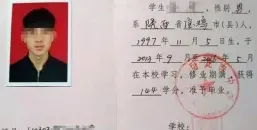 学生 性别 男
系 陕西省 市(县)人,
1997年11月5日生,于
2013年9月 年5月
在本校学习,修业期满,获得
144学分,准予毕业。
学校: